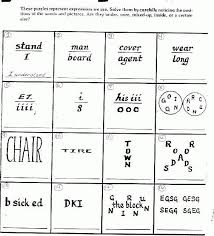 These puzzles represent expressions we use. Solve them by carefully noticing the posi-
tions of the words and pictures. Are they under, over, mixed-up, inside, or a certain
size?
stand
I
I understand
man
board
cover
agent
wear
long
EZ
iiii
i
8
his iii
ooo
GOING
CHAIR
TIRE
T
O
W
N
R
O
ROADS
A
D
S
b sick ed
DKI
G R U
the block N
N I N
EGSG GESG
SEGG SGEG